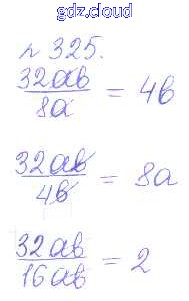 gdz.cloud
№ 325.
32ab/8a = 4b
32ab/4b = 8a
32ab/16ab = 2